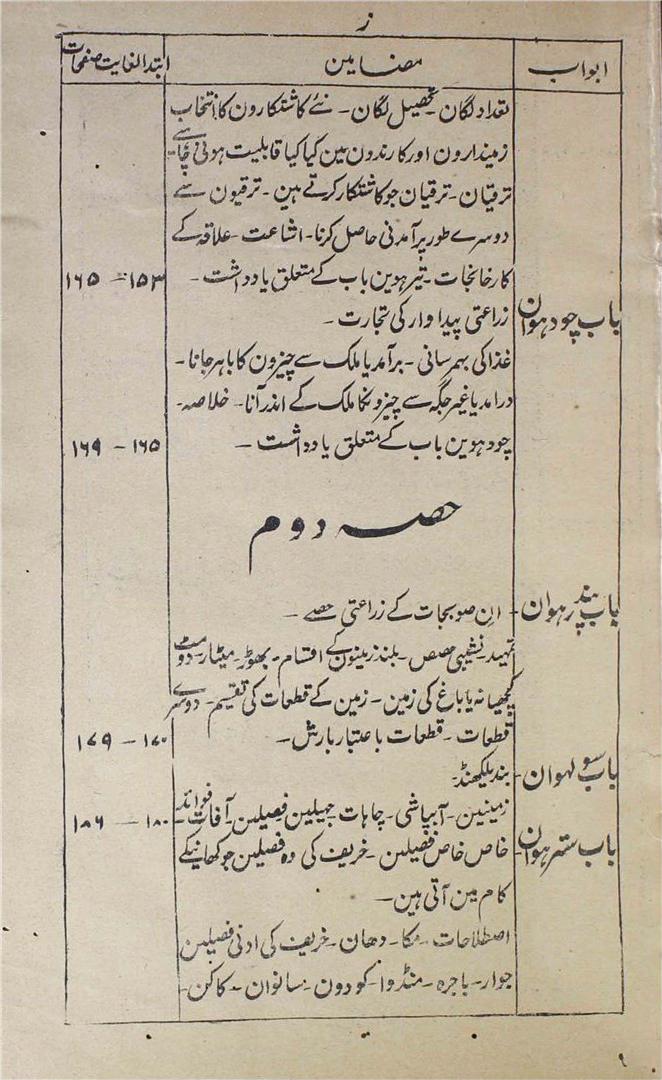 ز
ابواب مضامین ابتدا لغایت صفحات
تعداد لگان - تحصیل لگان - نئے کاشتکارون کا انتخاب
زمیندارون اور کارندون مین کیا کیا قابلیت ہونی چاہئے
ترقیان - ترقیان جو کاشتکار کرتے ہین - ترقیون سے
دوسرے طور پر آمدنی حاصل کرنا - اشاعت - علاقہ کے
کارخانجات - تیرہوین باب کے متعلق یادداشت - ۱۵۳ – ۱۶۵
باب چودہوان زراعتی پیداوار کی تجارت -
غذا کی بہمرسانی - برآمد یا ملک سے چیزون کا باہر جانا -
درامد یا غیر جگہ سے چیزونکا ملک کے اندر آنا - خلاصہ -
چودہوین باب کے متعلق یادداشت - ۱۶۵ – ۱۶۹
حصہ دوم
باب پندرہوان - ان صوبجات کے زراعتی حصے -
تمہید - نشیبی حصص - بلند زمینون کے اقسام - بھوڑ - میٹار - دومٹ
کچھیانہ یا باغ کی زمین - زمین کے قطعات کی تقسیم - دوسرے
قطعات - قطعات باعتبار بارش - ۱۷۰ – ۱۷۹
باب سولہوان - بندیلکھنڈ -
زمینین - آبپاشی - چاہات - جہیلین - فصیلین - آفات - فوائد ۱۸۰ – ۱۸۶
باب سترہوان خاص خاص فصیلین - خریف کی وہ فصیلین جو کھانیکے
کام مین آتی ہین -
اصطلاحات - مکا - دھان - خریف کی ادنی فصیلین
جوار - باجرہ - منڈوا - کودون - سانوان - کاکن -
۹